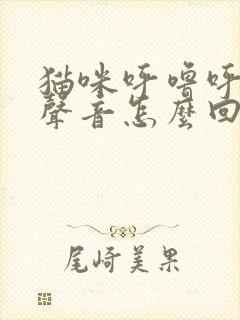 猫咪呼噜呼
聲音怎麼回
尾崎美果